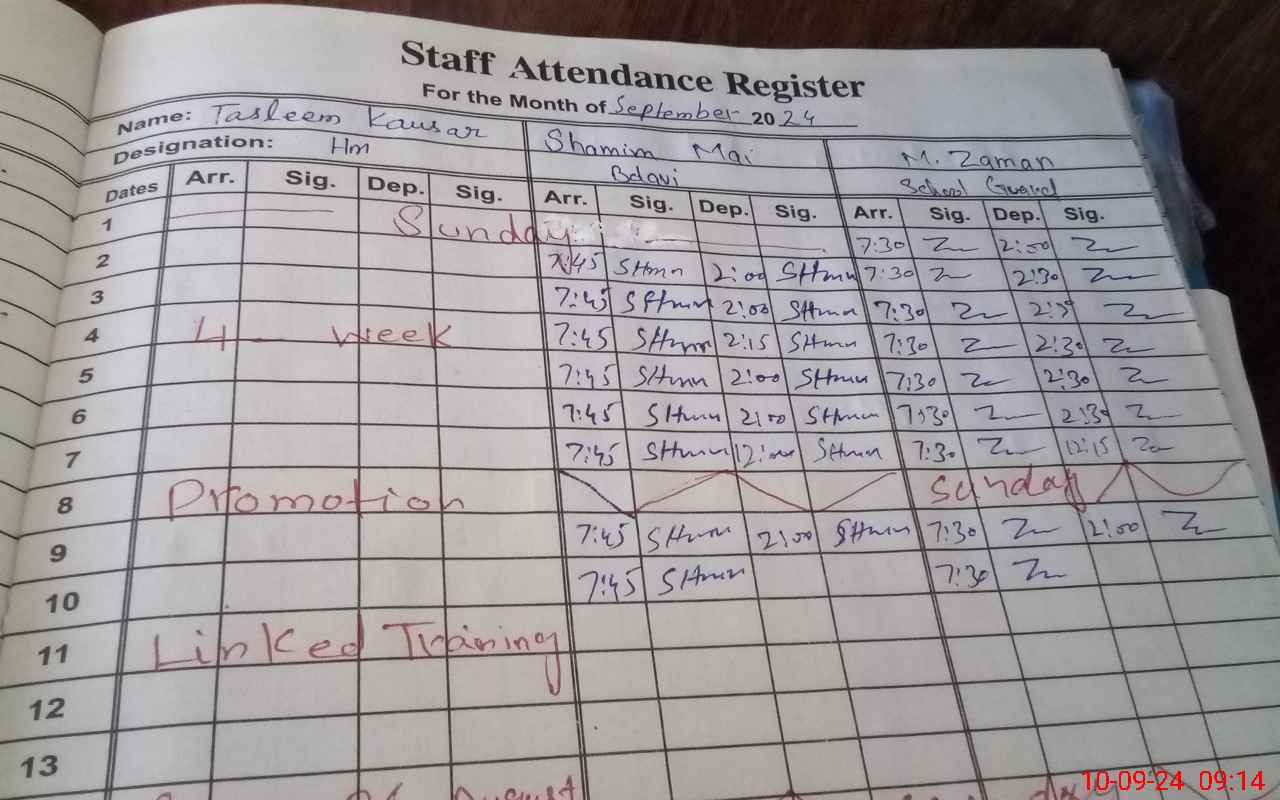 Staff Attendance Register
For the Month of September 2024
Name: Tasleem Kausar Shamim Mai M. Zaman
Designation: Hm School Guard
Dates Arr. Sig. Dep. Sig. Arr. Sig. Dep. Sig. Arr. Sig. Dep. Sig.
1 Sunday 7:30 2:00
2 7:45 SHmn 2:00 SHmn 7:30 2:30
3 7:45 SHmn 2:00 SHmn 7:30
4 4 week 7:45 SHmn 2:15 SHmn 7:30 2:30
5 7:45 SHmn 2:00 SHmn 7:30 2:30
6 7:45 SHmn 2:00 SHmn 7:30 2:30
7 7:45 SHmn 12:00 SHmn 7:30 12:15
8 Promotion Sunday
9 7:45 SHmn 2:00 SHmn 7:30 2:00
10 7:45 SHmn 7:30
11 Linked Training
12
13
August
10-09-24 09:14